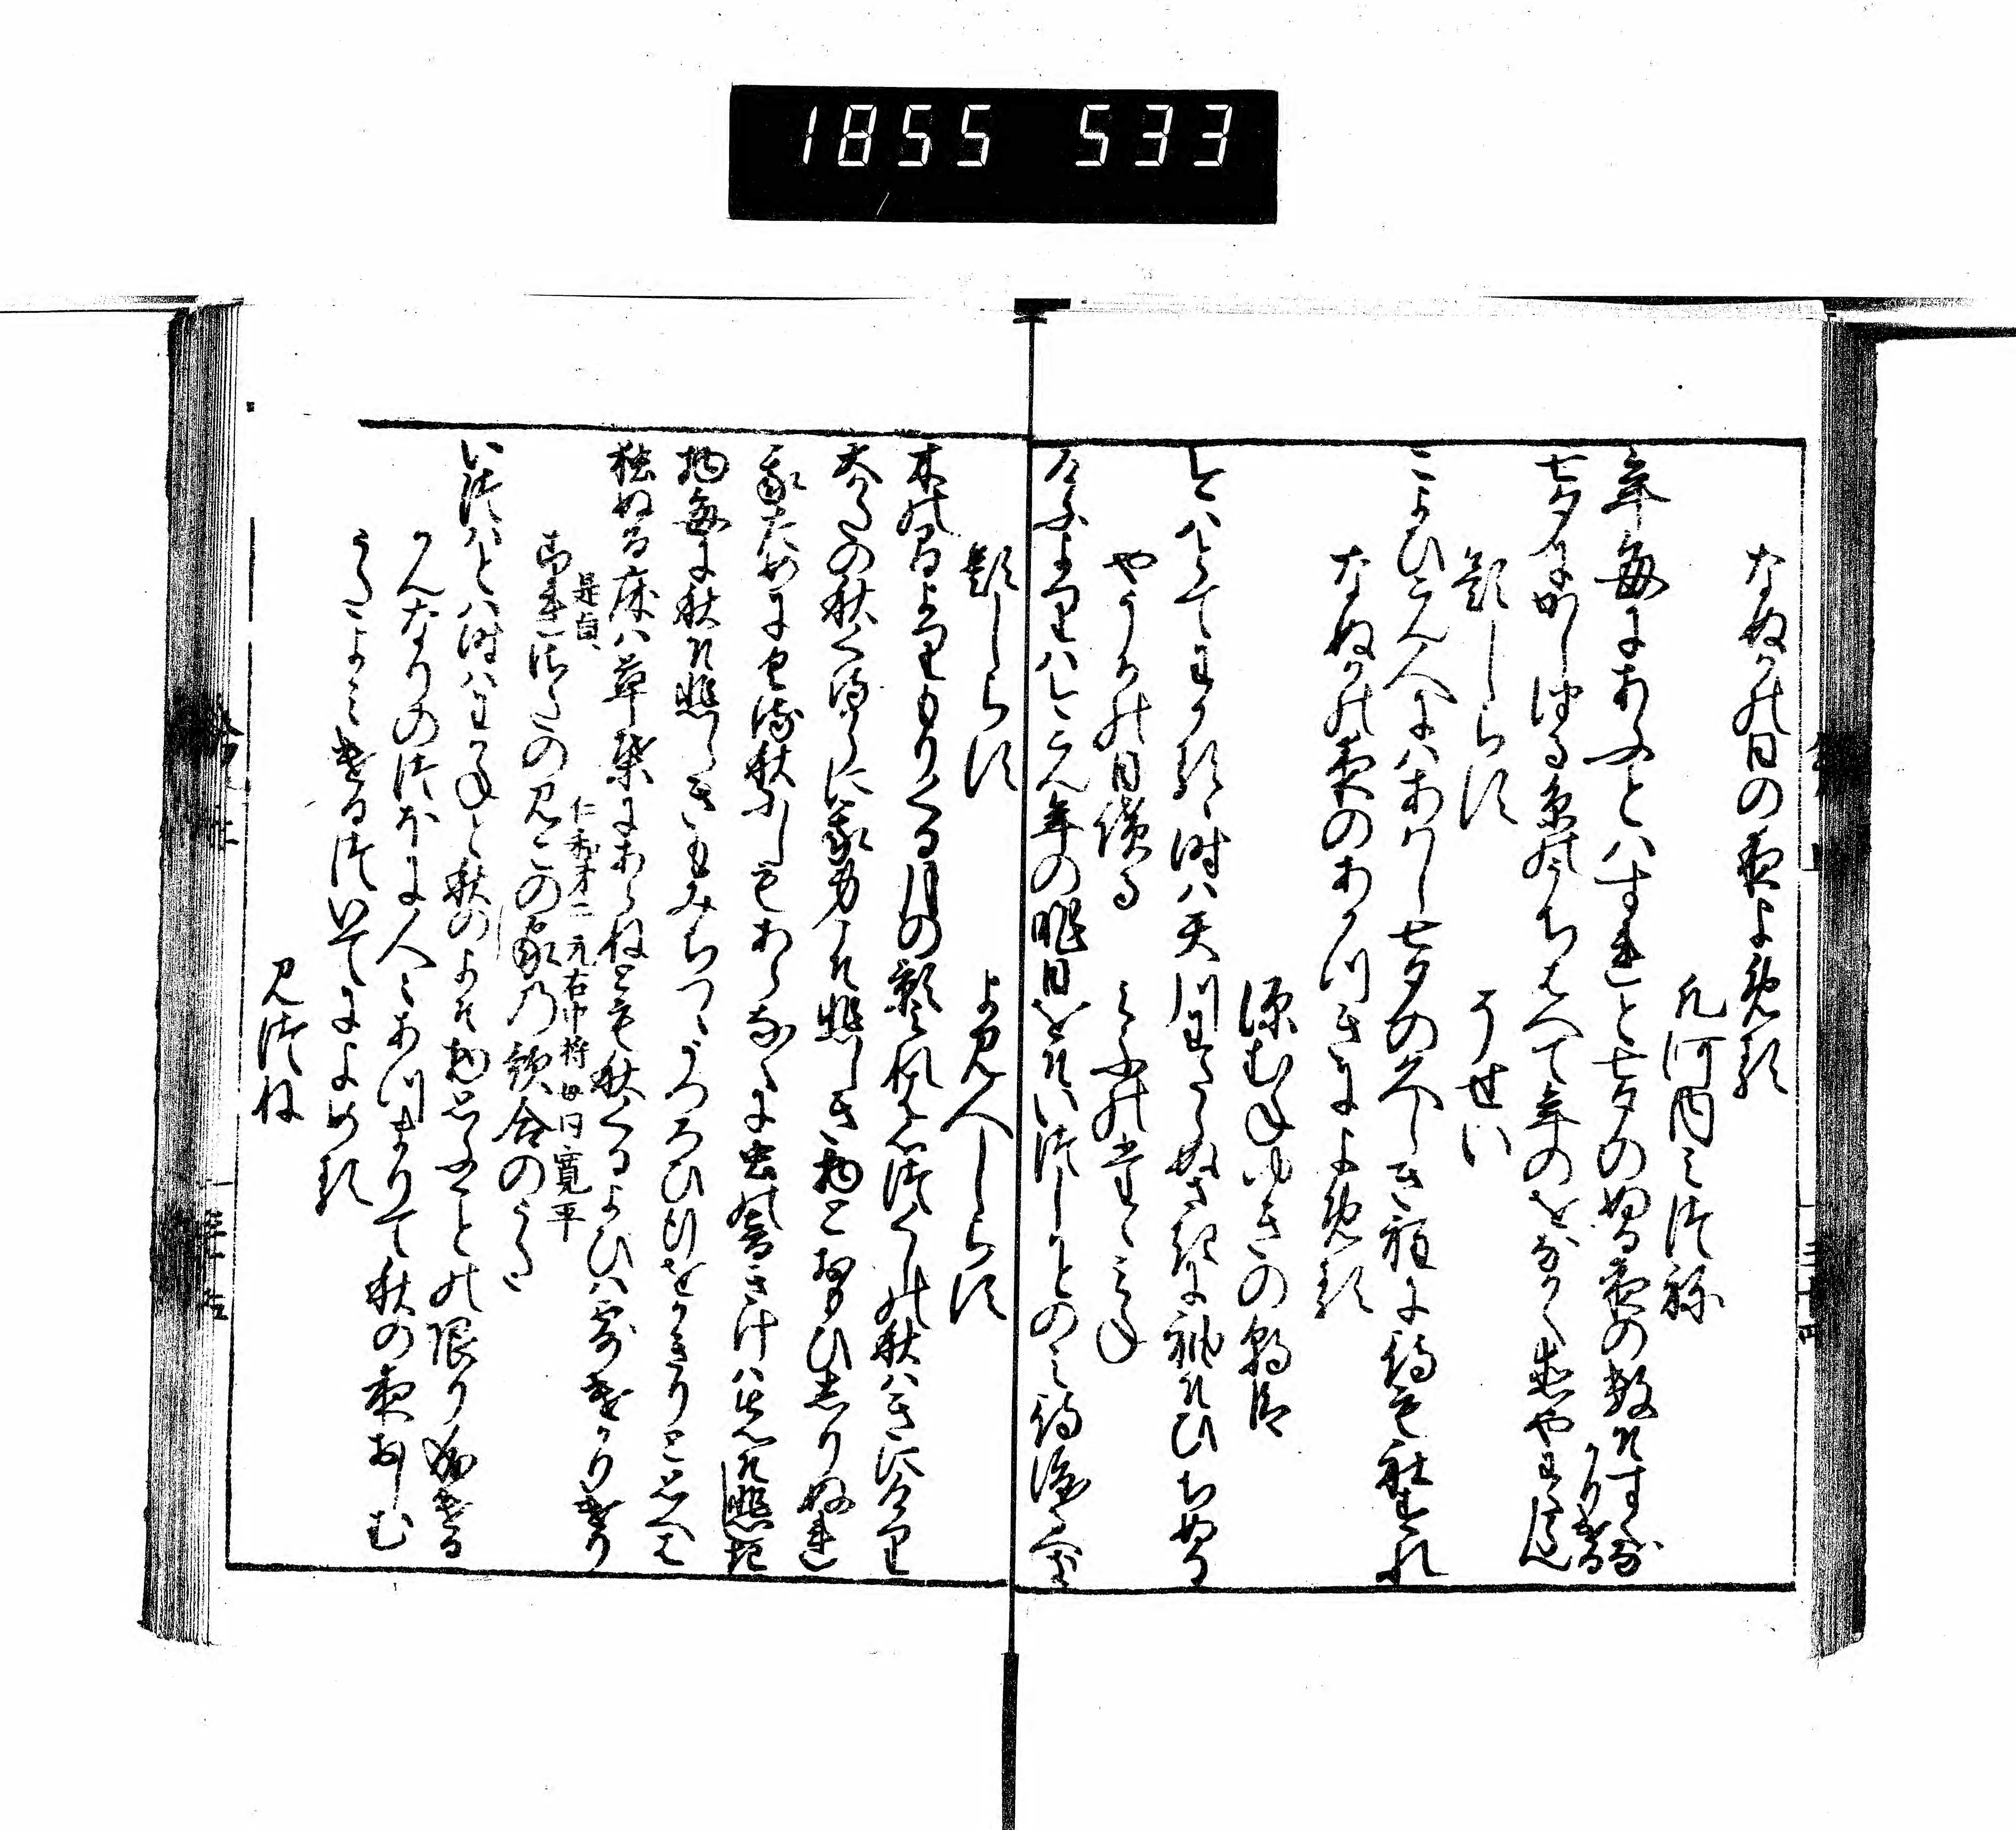 1855 533
なぬかの日の夜よめる
凡河内みつね
年毎にあふとはすれと七夕のぬる夜の数そすくな
かりける
七夕にかしつる糸のうちはへて年のをなかく恋やわたらん
題しらす
そせい
こよひこん人にはあはし七夕の久しき程に待もこそすれ
なぬかの夜のあかつきによめる
源むねゆきの朝臣
今はとてわかるゝ時は天川わたらぬさきに袖そひちぬる
やうかの日読る
みふのたゝみね
けふよりは今こん年の昨日をそいつしかとのみ待渡へき
題しらす
よみ人しらす
木の間よりもりくる月の影見れは心つくしの秋はきにけり
大かたの秋くるからに我身こそ悲しき物とおもひしりぬれ
我ためにくる秋にしもあらなくに虫の音きけは先そ悲き
物毎に秋そ悲しきもみちつゝうつろひ行をかきりと思へは
独ぬる床は草葉にあらねとも秋くるよひは露けかりけり
是貞
仁和才二元右中将廿日寛平
これさたのみこの家の歌合のうた
いつはとは時はわかねと秋のよそ物思ふことの限り成ける
かんなりのつほに人々あつまりて秋の夜おしむ
うたよみけるつゐてによめる
みつね